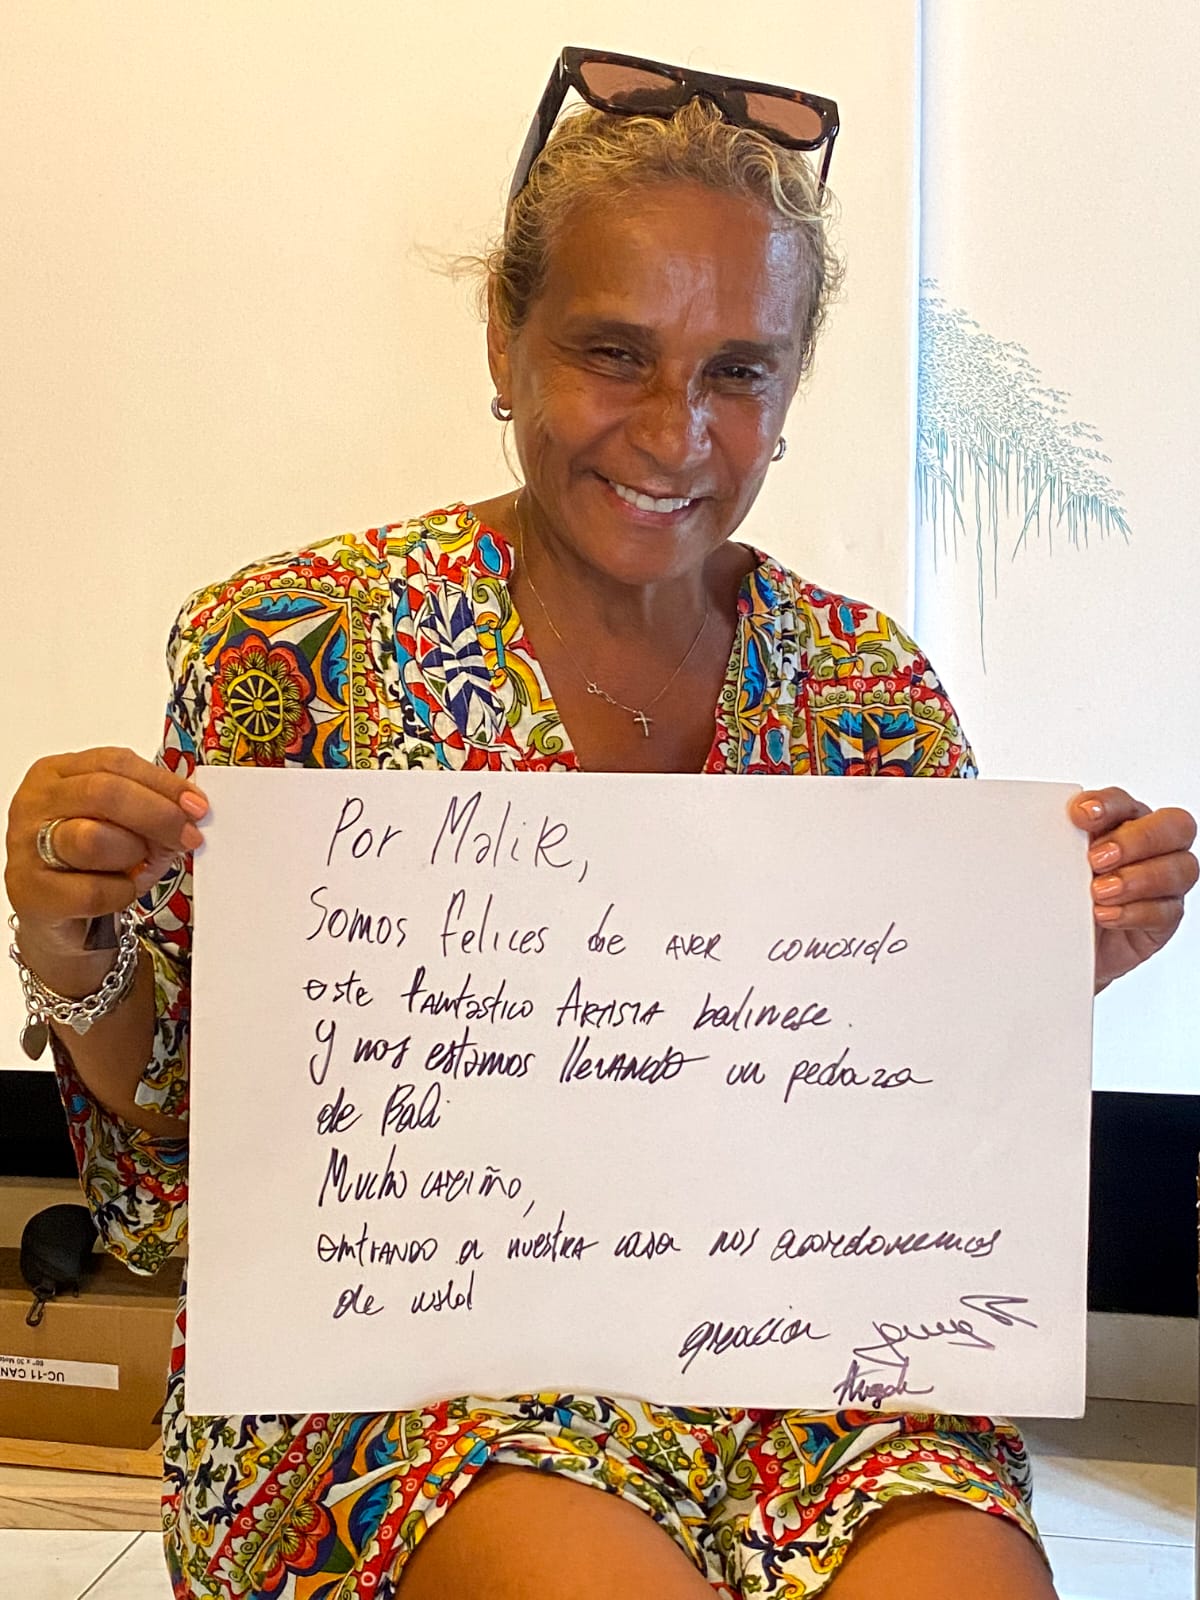 Por Malik,
Somos felices de aver conosido
este fantastico Artista balinese.
y nos estamos llevando un pedazza
de Bali
Mucho cariño,
entrando a nuestra casa nos acordaremos
de usted
gracias
UC-11 CAN